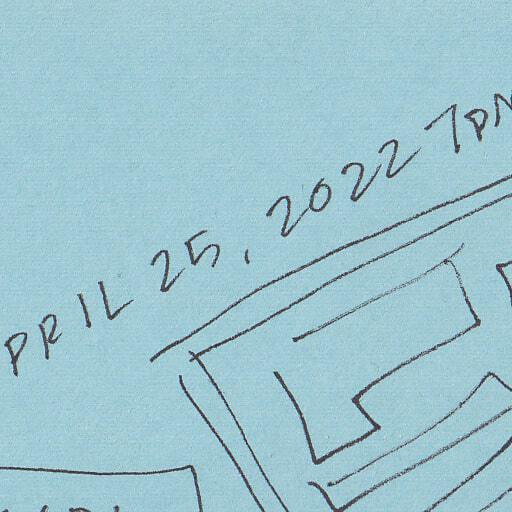 PRIL 25, 2022 7PM